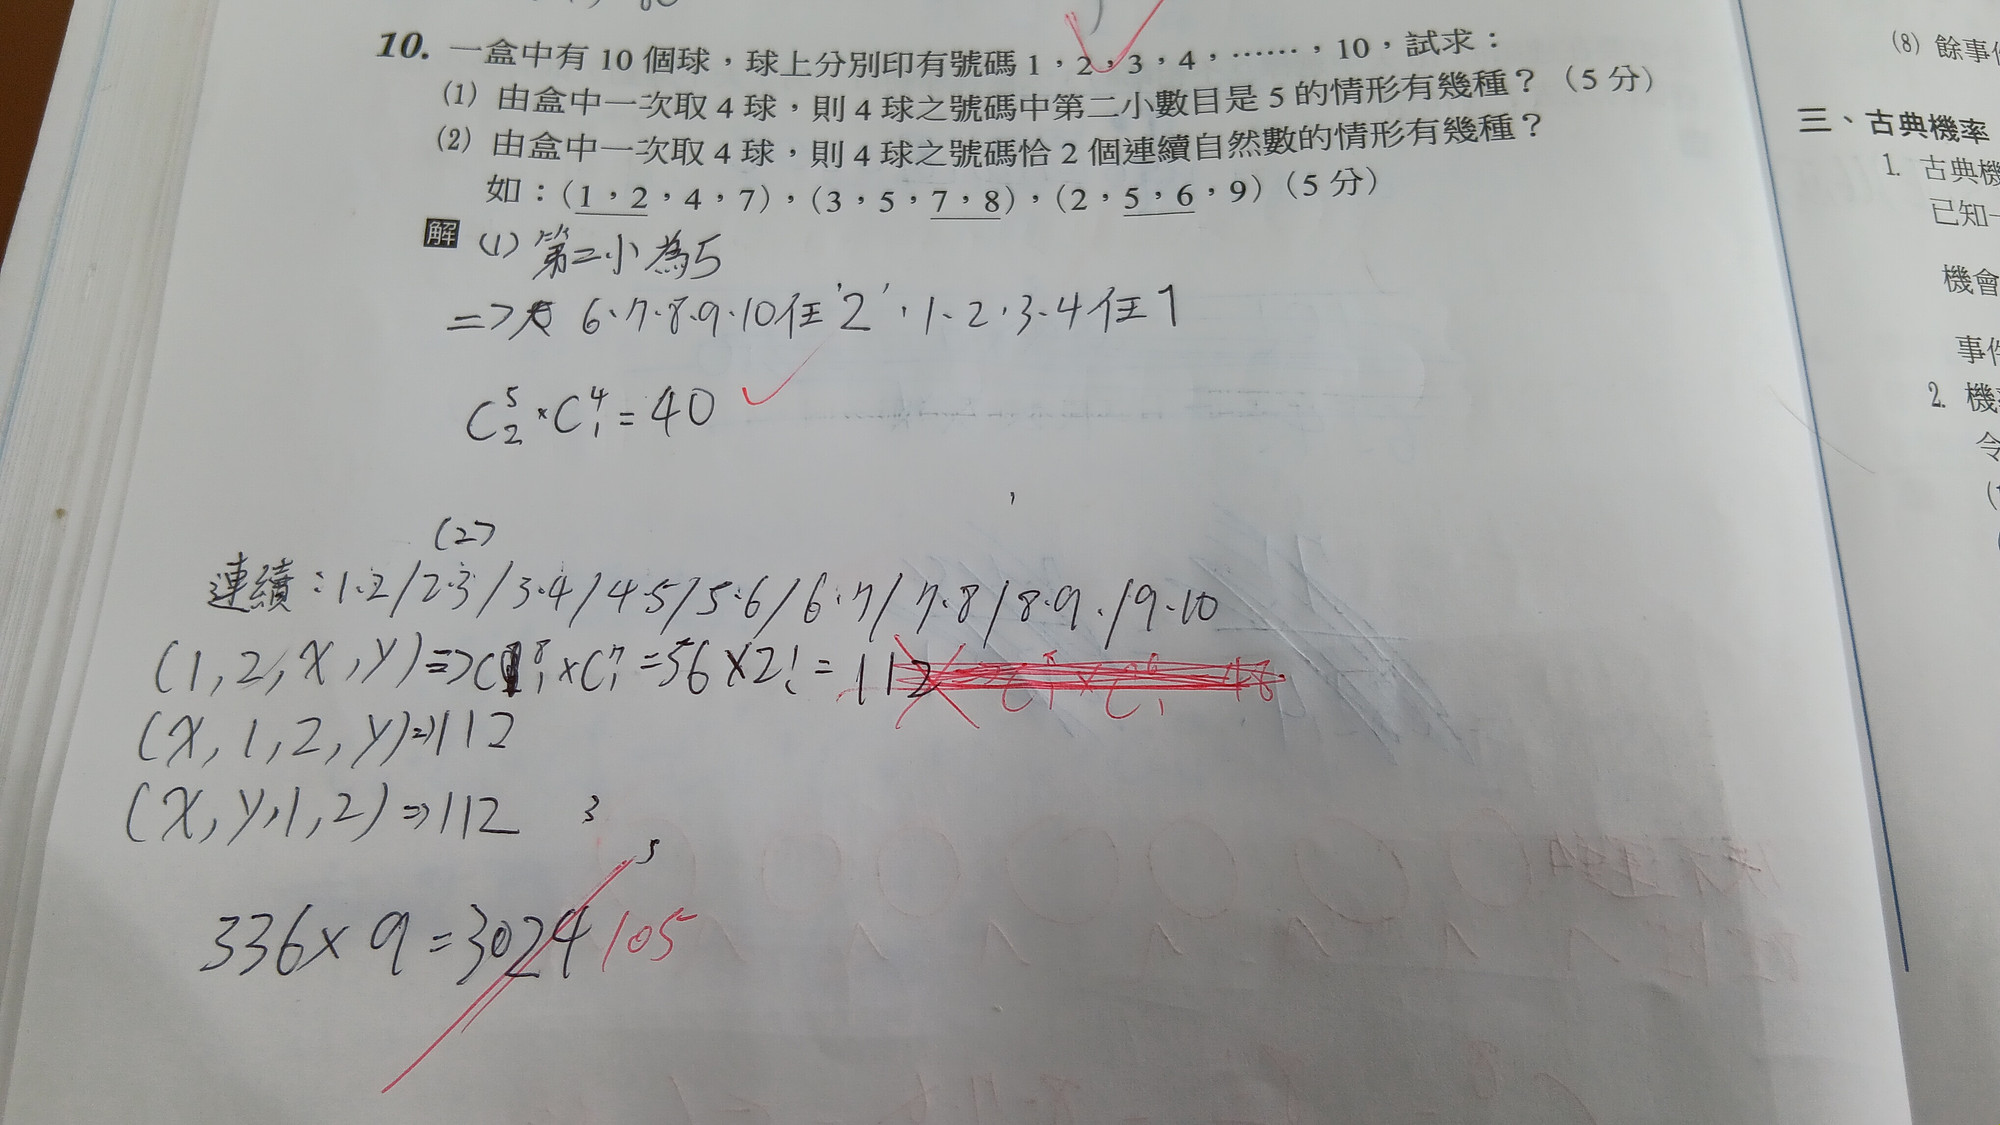 10. 一盒中有 10 個球，球上分別印有號碼 1，2，3，4，……，10，試求：
(1) 由盒中一次取 4 球，則 4 球之號碼中第二小數目是 5 的情形有幾種？（5 分）
(2) 由盒中一次取 4 球，則 4 球之號碼恰 2 個連續自然數的情形有幾種？
如：(1，2，4，7)，(3，5，7，8)，(2，5，6，9)（5 分）
解 (1) 第二小為5
=> 6.7.8.9.10任2，1.2.3.4任1
C⁵₂×C⁴₁=40
(2)
連續：1.2/2.3/3.4/4.5/5.6/6.7/7.8/8.9./9.10
(1,2,X,Y)=>C⁸₁×C⁷₁=56×2!=112
(X,1,2,Y)=>112
(X,Y,1,2)=>112
336×9=3024 105
(8) 餘事
三、古典機率
1. 古典機
已知
機會
事件
2. 機
令